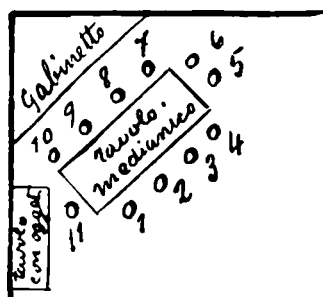 Gabinetto
7
6
8
5
9
10
tavolo.
medianico
4
3
2
1
11
tavolo
con ogget.